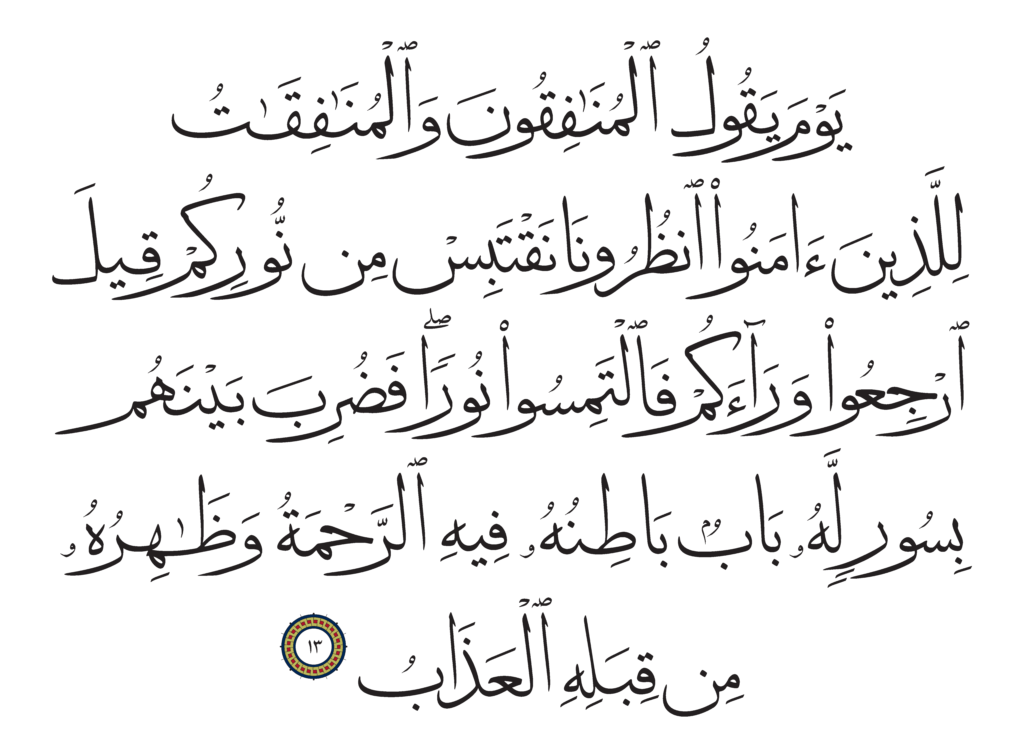 يَوْمَ يَقُولُ ٱلْمُنَٰفِقُونَ وَٱلْمُنَٰفِقَٰتُ
لِلَّذِينَ ءَامَنُوا۟ ٱنظُرُونَا نَقْتَبِسْ مِن نُّورِكُمْ قِيلَ
ٱرْجِعُوا۟ وَرَآءَكُمْ فَٱلْتَمِسُوا۟ نُورًۭا ۖ فَضُرِبَ بَيْنَهُم
بِسُورٍۢ لَّهُۥ بَابٌۢ بَاطِنُهُۥ فِيهِ ٱلرَّحْمَةُ وَظَٰهِرُهُۥ
مِن قِبَلِهِ ٱلْعَذَابُ ١٣